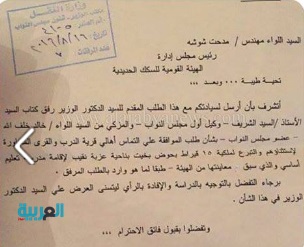 وزارة النقل
٢٠١٦/٨/١٦
السيد اللواء مهندس / مدحت شوشه
رئيس مجلس إدارة
الهيئة القومية للسكك الحديدية
تحية طيبة ... وبعد ...
أتشرف بأن أرسل لسيادتكم مع هذا الطلب المقدم للسيد الدكتور الوزير رفق كتاب السيد
الأستاذ / السيد الشريف - وكيل أول مجلس النواب - والمزكي من السيد اللواء / خالد خلف الله
- عضو مجلس النواب - بشأن طلب الموافقة على التماس أهالي قرية الدرب والقرى المجاورة
لاستئذانهم والتبرع لملكية ١٥ قيراط بحوض بخيت بناحية عزبة نقيب لإقامة مدرسة تعليم
أساسي والذي سبق معاينتها من الهيئة - طبقا لما هو وارد بالطلب المرفق .
برجاء التفضل بالتوجيه بالدراسة والإفادة بالرأي ليتسنى العرض على السيد الدكتور
الوزير في هذا الشأن .
وتفضلوا بقبول فائق الاحترام ...
العربية